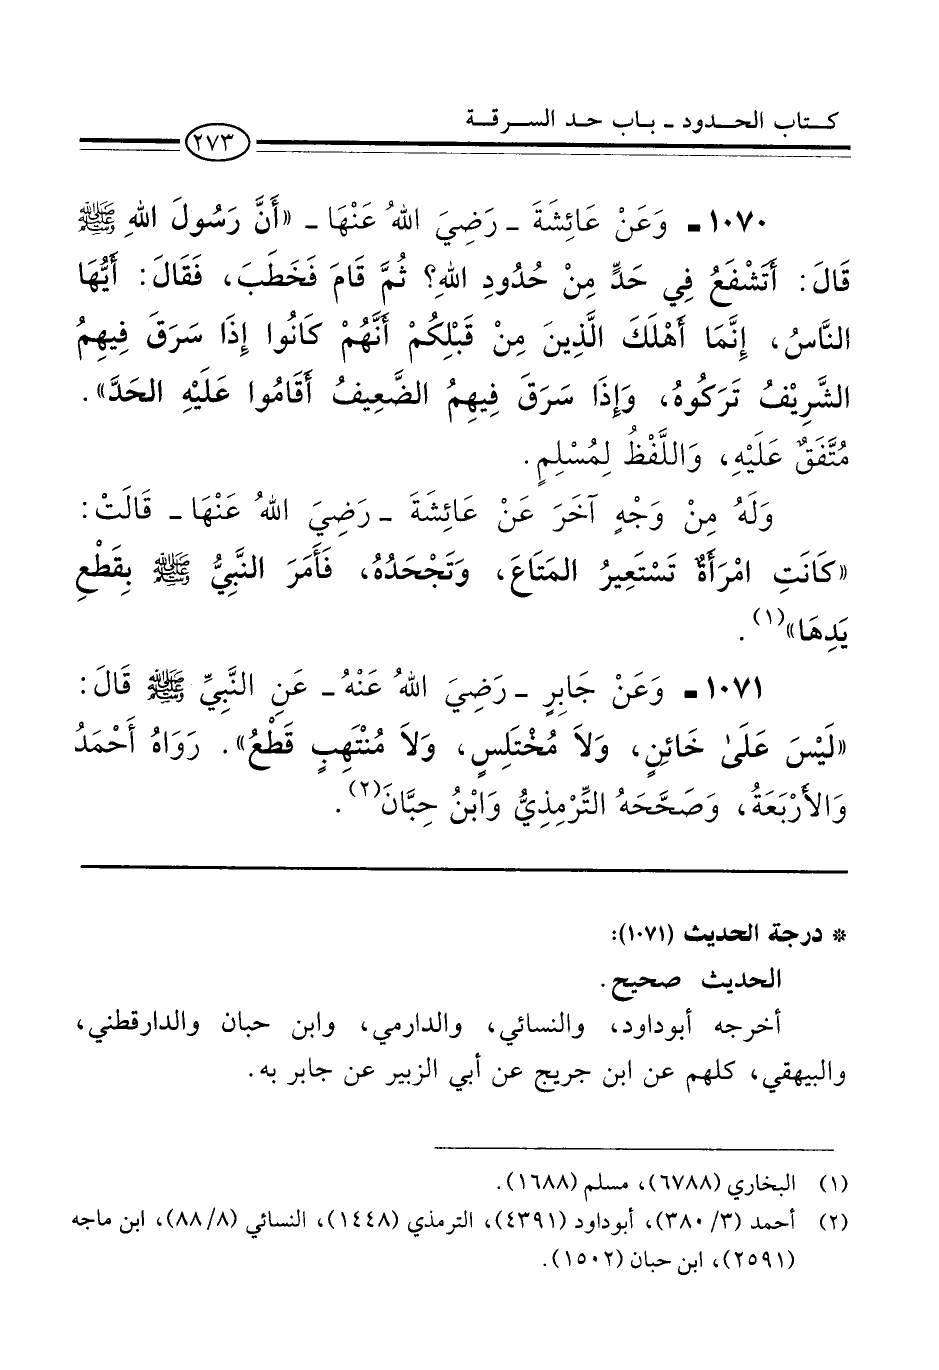 كتاب الحدود ـ باب حد السرقة
٢٧٣
١٠٧٠ ـ وَعَنْ عَائِشَةَ ـ رَضِيَ اللهُ عَنْهَا ـ «أَنَّ رَسُولَ اللهِ ﷺ
قَالَ: أَتَشْفَعُ فِي حَدٍّ مِنْ حُدُودِ اللهِ؟ ثُمَّ قَامَ فَخَطَبَ، فَقَالَ: أَيُّهَا
النَّاسُ، إِنَّمَا أَهْلَكَ الَّذِينَ مِنْ قَبْلِكُمْ أَنَّهُمْ كَانُوا إِذَا سَرَقَ فِيهِمُ
الشَّرِيْفُ تَرَكُوهُ، وَإِذَا سَرَقَ فِيهِمُ الضَّعِيفُ أَقَامُوا عَلَيْهِ الحَدَّ».
مُتَّفَقٌ عَلَيْهِ، وَاللَّفْظُ لِمُسْلِمٍ.
وَلَهُ مِنْ وَجْهٍ آخَرَ عَنْ عَائِشَةَ ـ رَضِيَ اللهُ عَنْهَا ـ قَالَتْ:
«كَانَتِ امْرَأَةٌ تَسْتَعِيرُ المَتَاعَ، وَتَجْحَدُهُ، فَأَمَرَ النَّبِيُّ ﷺ بِقَطْعِ
يَدِهَا»(١).
١٠٧١ ـ وَعَنْ جَابِرٍ ـ رَضِيَ اللهُ عَنْهُ ـ عَنِ النَّبِيِّ ﷺ قَالَ:
«لَيْسَ عَلَىٰ خَائِنٍ، وَلاَ مُخْتَلِسٍ، وَلاَ مُنْتَهِبٍ قَطْعُ». رَوَاهُ أَحْمَدُ
وَالأَرْبَعَةُ، وَصَحَّحَهُ التِّرْمِذِيُّ وَابْنُ حِبَّانَ(٢).
* درجة الحديث (١٠٧١):
الحديث صحيح.
أخرجه أبوداود، والنسائي، والدارمي، وابن حبان والدارقطني،
والبيهقي، كلهم عن ابن جريج عن أبي الزبير عن جابر به.
(١) البخاري (٦٧٨٨)، مسلم (١٦٨٨).
(٢) أحمد (٣/ ٣٨٠)، أبوداود (٤٣٩١)، الترمذي (١٤٤٨)، النسائي (٨/ ٨٨)، ابن ماجه
(٢٥٩١)، ابن حبان (١٥٠٢).